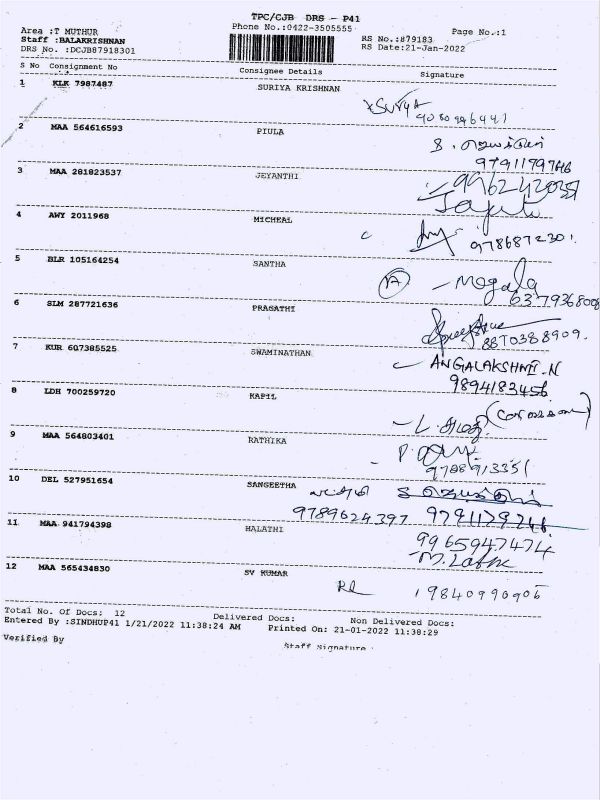 TPC/CJB DRS - P41
Area :T MUTHUR Phone No.:0422-3505555 Page No.:1
Staff :BALAKRISHNAN RS No.:879183
DRS No. :DCJB87918301 RS Date:21-Jan-2022
S No Consignment No Consignee Details Signature
1 KLK 7987487 SURIYA KRISHNAN
SURYA
2 MAA 564616593 PIULA
9791179746
3 MAA 281823537 JEYANTHI
4 AWY 2011968 MICHEAL
5 BLR 105164254 SANTHA
A - Megala
6379368008
6 SLM 287721636 PRASATHI
8870388909.
7 KUR 607385525 SWAMINATHAN
ANGALAKSHMI.N
9894183456
8 LDH 700259720 KAPIL
9 MAA 564803401 RATHIKA
9788913351
10 DEL 527951654 SANGEETHA
9789624397 9791179746
11 MAA 941794398 HALATHI
9965947474
12 MAA 565434830 SV KUMAR
19840990906
Total No. Of Docs: 12 Delivered Docs: Non Delivered Docs:
Entered By :SINDHUP41 1/21/2022 11:38:24 AM Printed On: 21-01-2022 11:38:29
Verified By Staff Signature